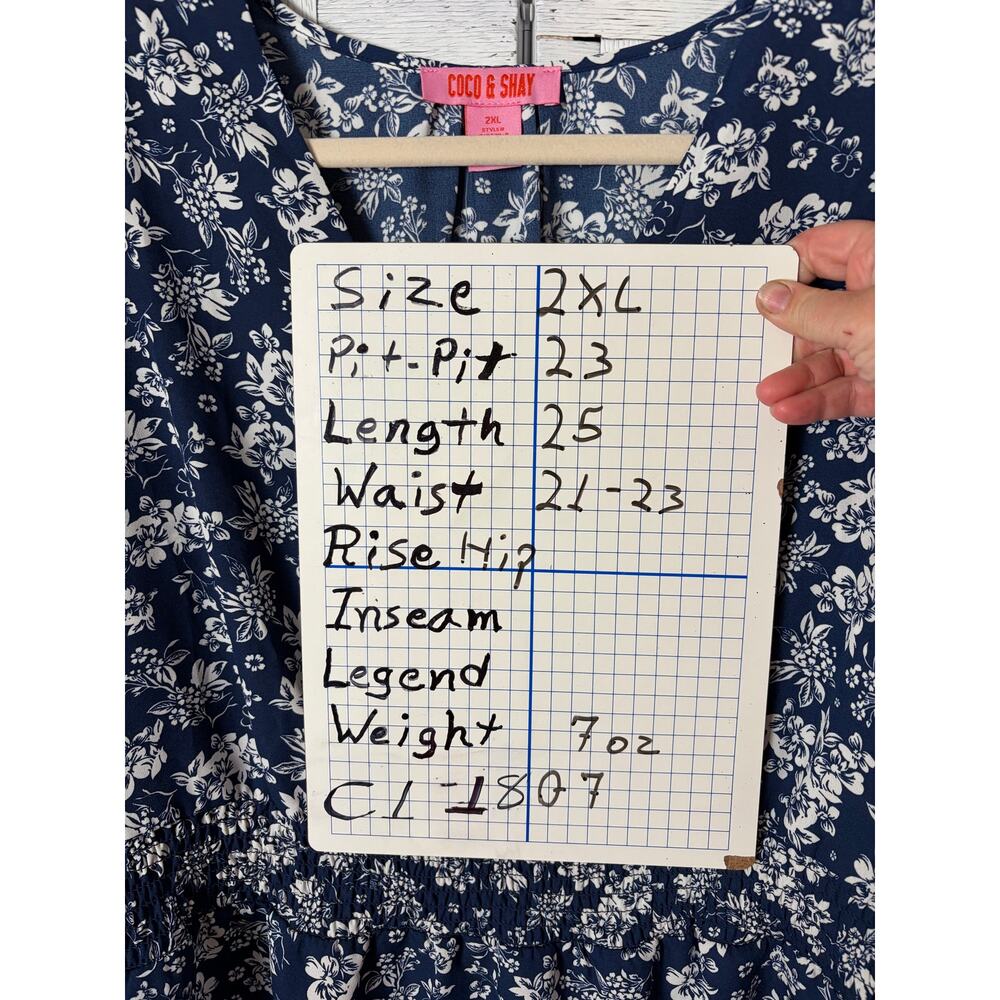 COCO & SHAY
2XL
STYLE#
Size 2XL
Pit-Pit 23
Length 25
Waist 21-23
Rise Hip
Inseam
Legend
Weight 7 oz
C1-1807